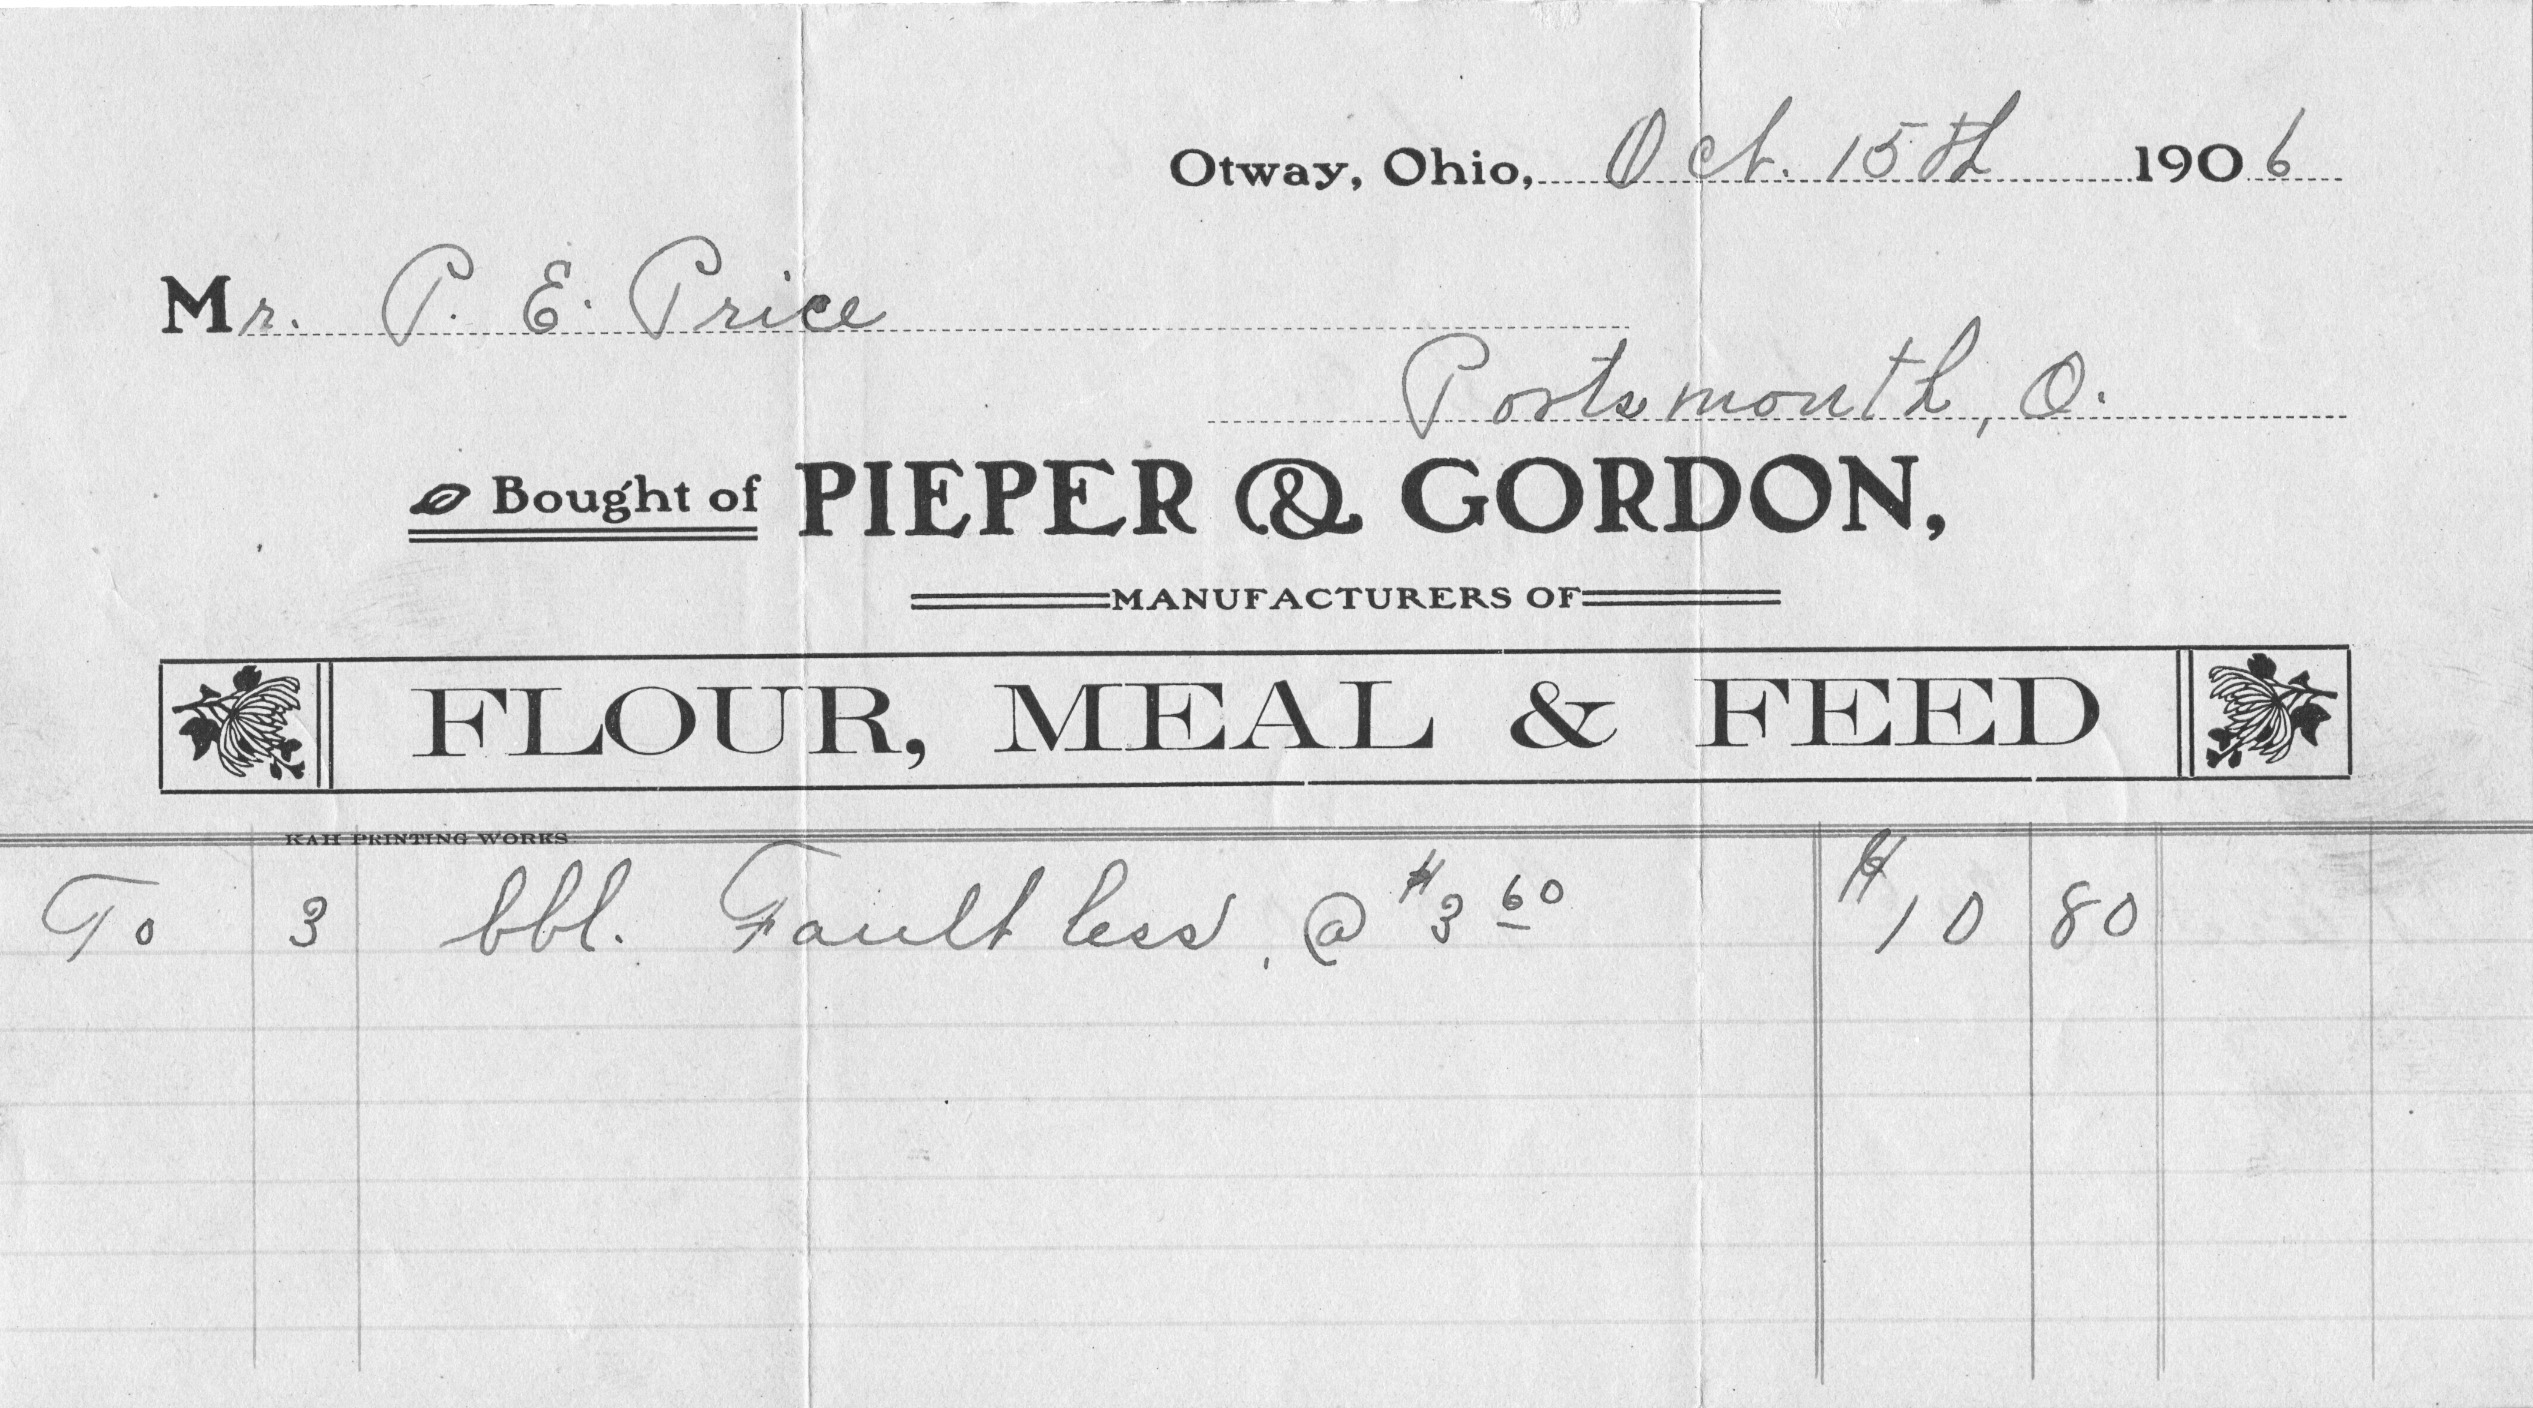 Otway, Ohio, Oct. 15th 1906
Mr. P. E. Price
Portsmouth, O.
Bought of PIEPER & GORDON,
MANUFACTURERS OF
FLOUR, MEAL & FEED
KAH PRINTING WORKS
To 3 bbl. Faultless, @ $3 60 $10 80